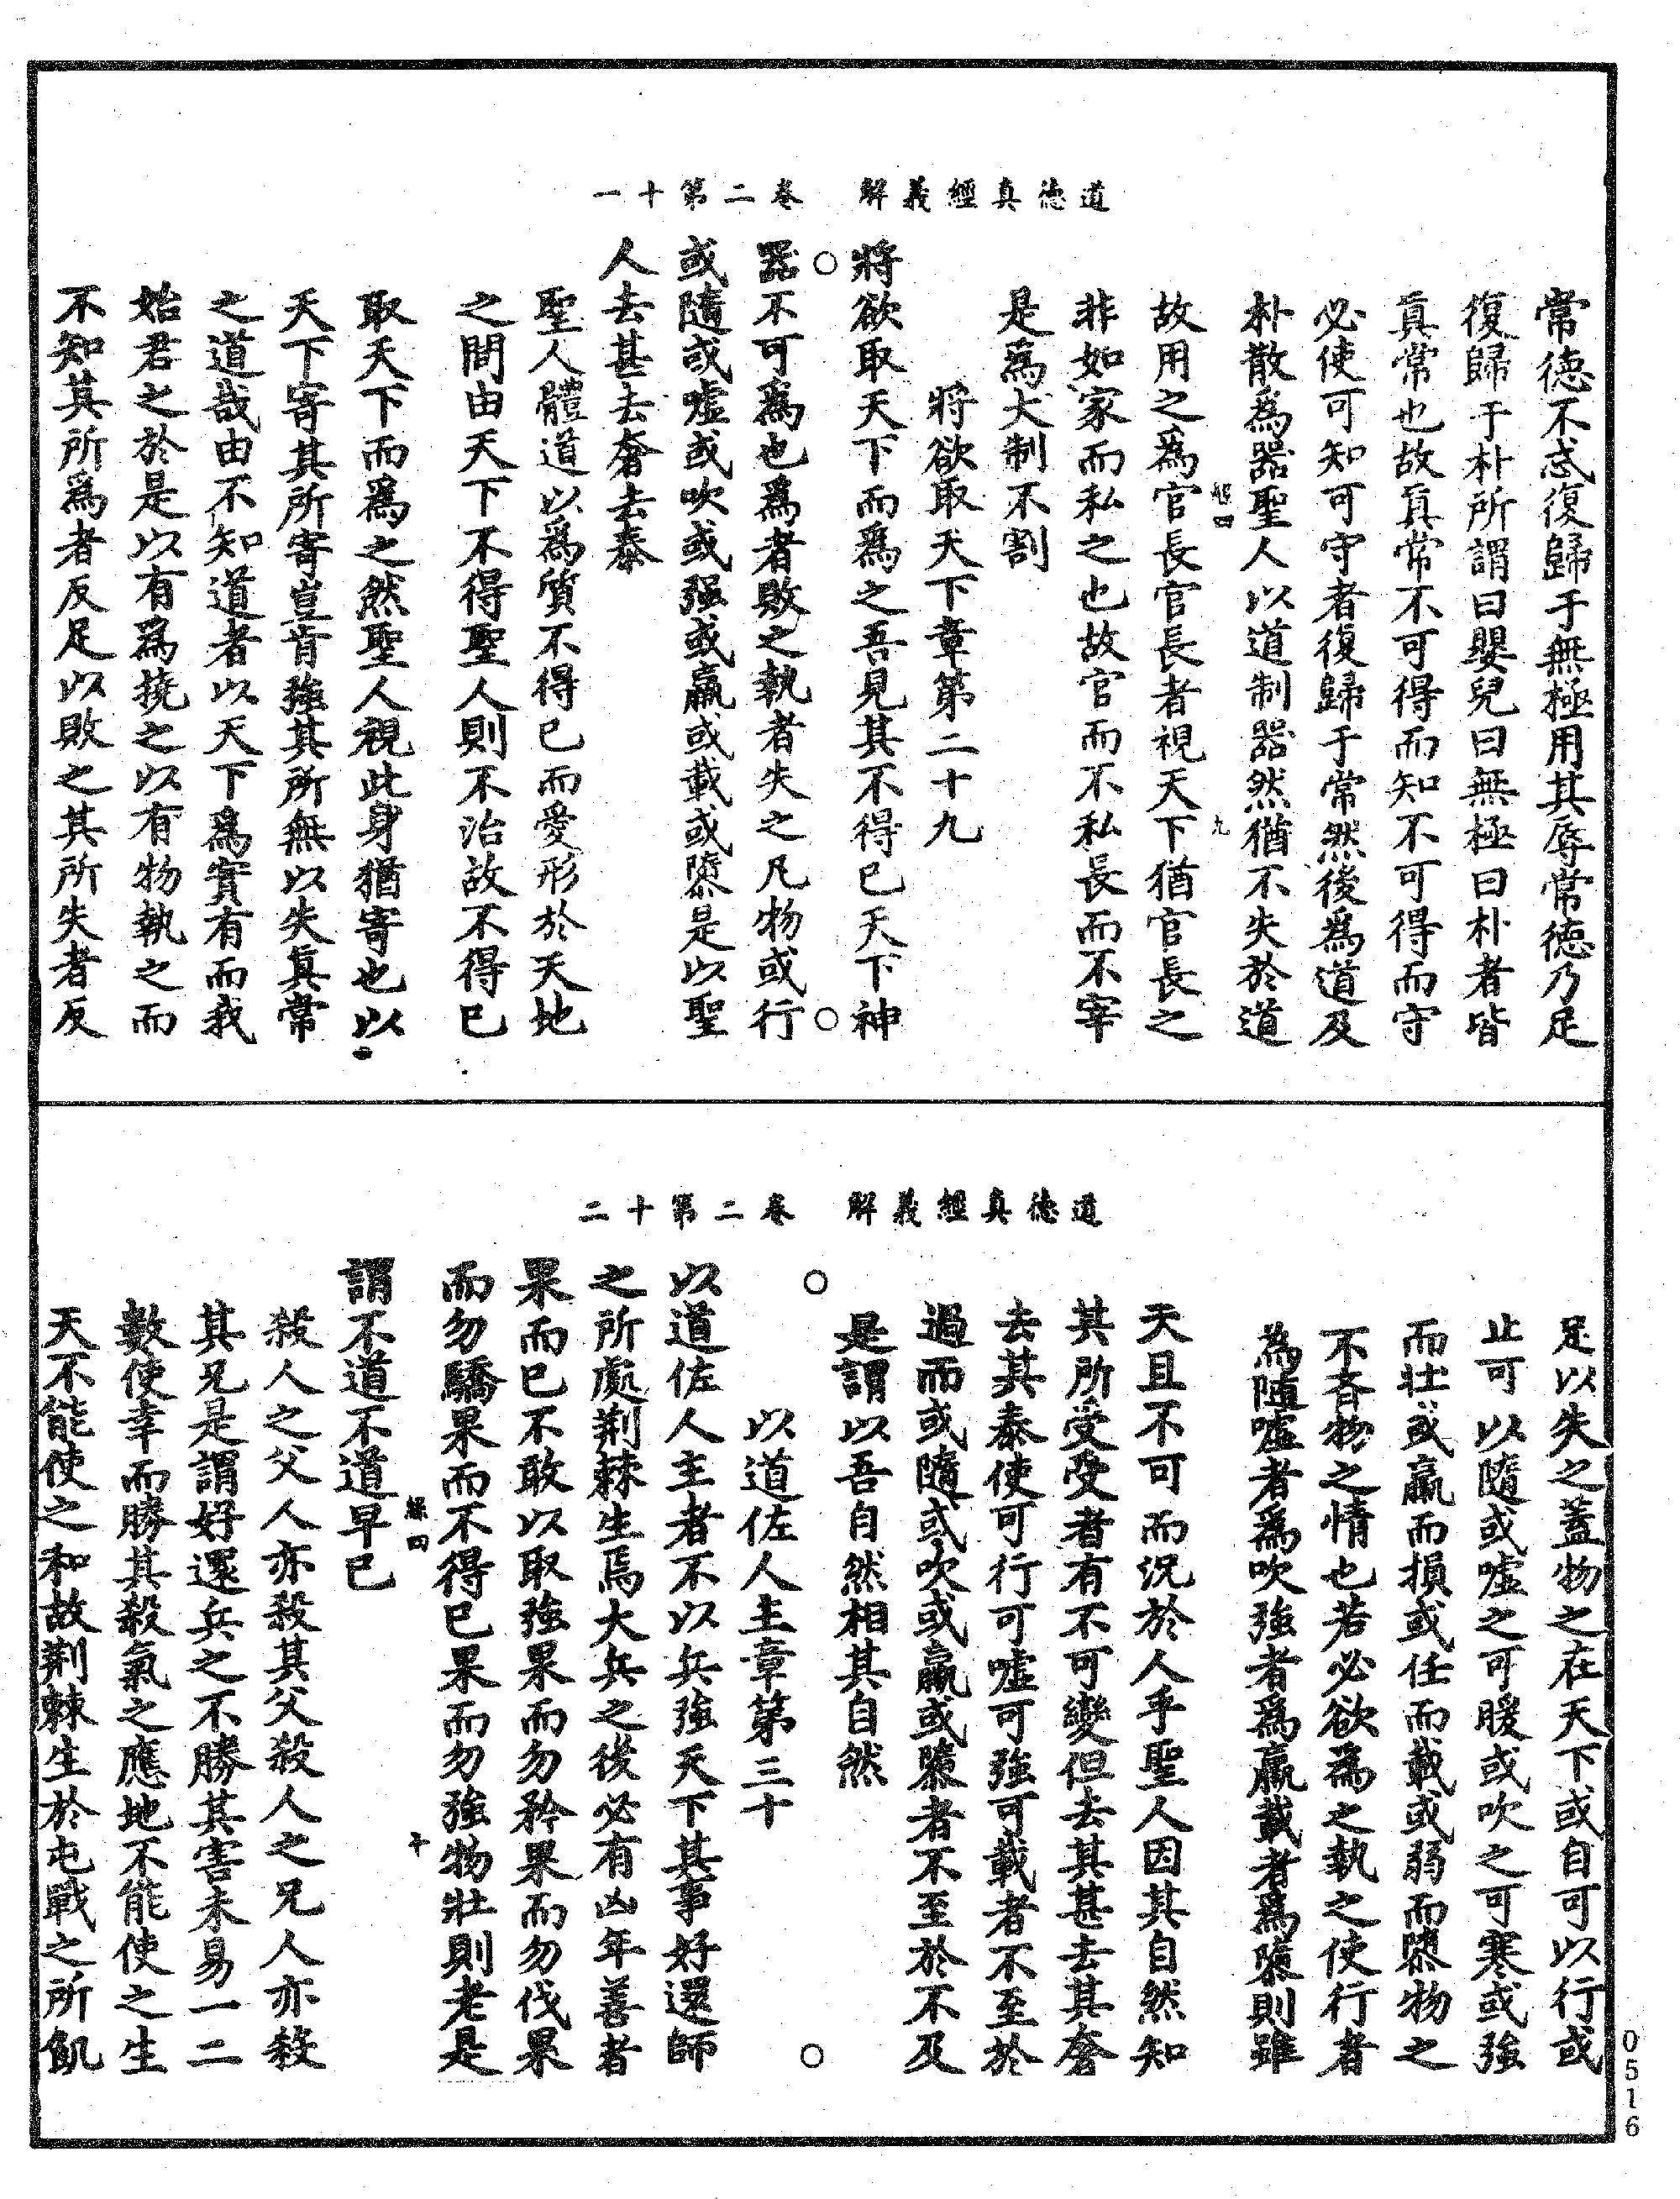 道德真經義解　卷二第十一
常德不忒復歸于無極用其辱常德乃足
復歸于朴所謂曰嬰兒曰無極曰朴者皆
真常也故真常不可得而知不可得而守
必使可知可守者復歸于常然後爲道及
朴散爲器聖人以道制器然猶不失於道
四
故用之爲官長官長者視天下猶官長之
九
非如家而私之也故官而不私長而不宰
是爲大制不割
將欲取天下章第二十九
將欲取天下而爲之吾見其不得已天下神
○ ○
器不可爲也爲者敗之執者失之凡物或行
或隨或噓或吹或强或羸或載或隳是以聖
人去甚去奢去泰
聖人體道以爲質不得已而愛形於天地
之間由天下不得聖人則不治故不得已
取天下而爲之然聖人視此身猶寄也以
天下寄其所寄豈肯強其所無以失真常
之道哉由不知道者以天下爲實有而我
始君之於是以有爲撓之以有物執之而
不知其所爲者反足以敗之其所失者反
道德真經義解　卷二第十二
足以失之蓋物之在天下或自可以行或
止可以隨或噓之可暖或吹之可寒或強
而壯或羸而損或任而載或弱而隳物之
不吝物之情也若必欲爲之執之使行者
爲隨噓者爲吹強者爲羸載者爲隳則雖
天且不可而況於人乎聖人因其自然知
其所受受者有不可變但去其甚去其奢
去其泰使可行可噓可強可載者不至於
過而或隨或吹或羸或隳者不至於不及
是謂以吾自然相其自然
○ ○
以道佐人主章第三十
以道佐人主者不以兵強天下其事好還師
之所處荆棘生焉大兵之後必有凶年善者
果而已不敢以取強果而勿矜果而勿伐果
而勿驕果而不得已果而勿強物壯則老是
四 十
謂不道不道早已
殺人之父人亦殺其父殺人之兄人亦殺
其兄是謂好還兵之不勝其害未易一二
數使幸而勝其殺氣之應地不能使之生
天不能使之和故荆棘生於屯戰之所飢
0516